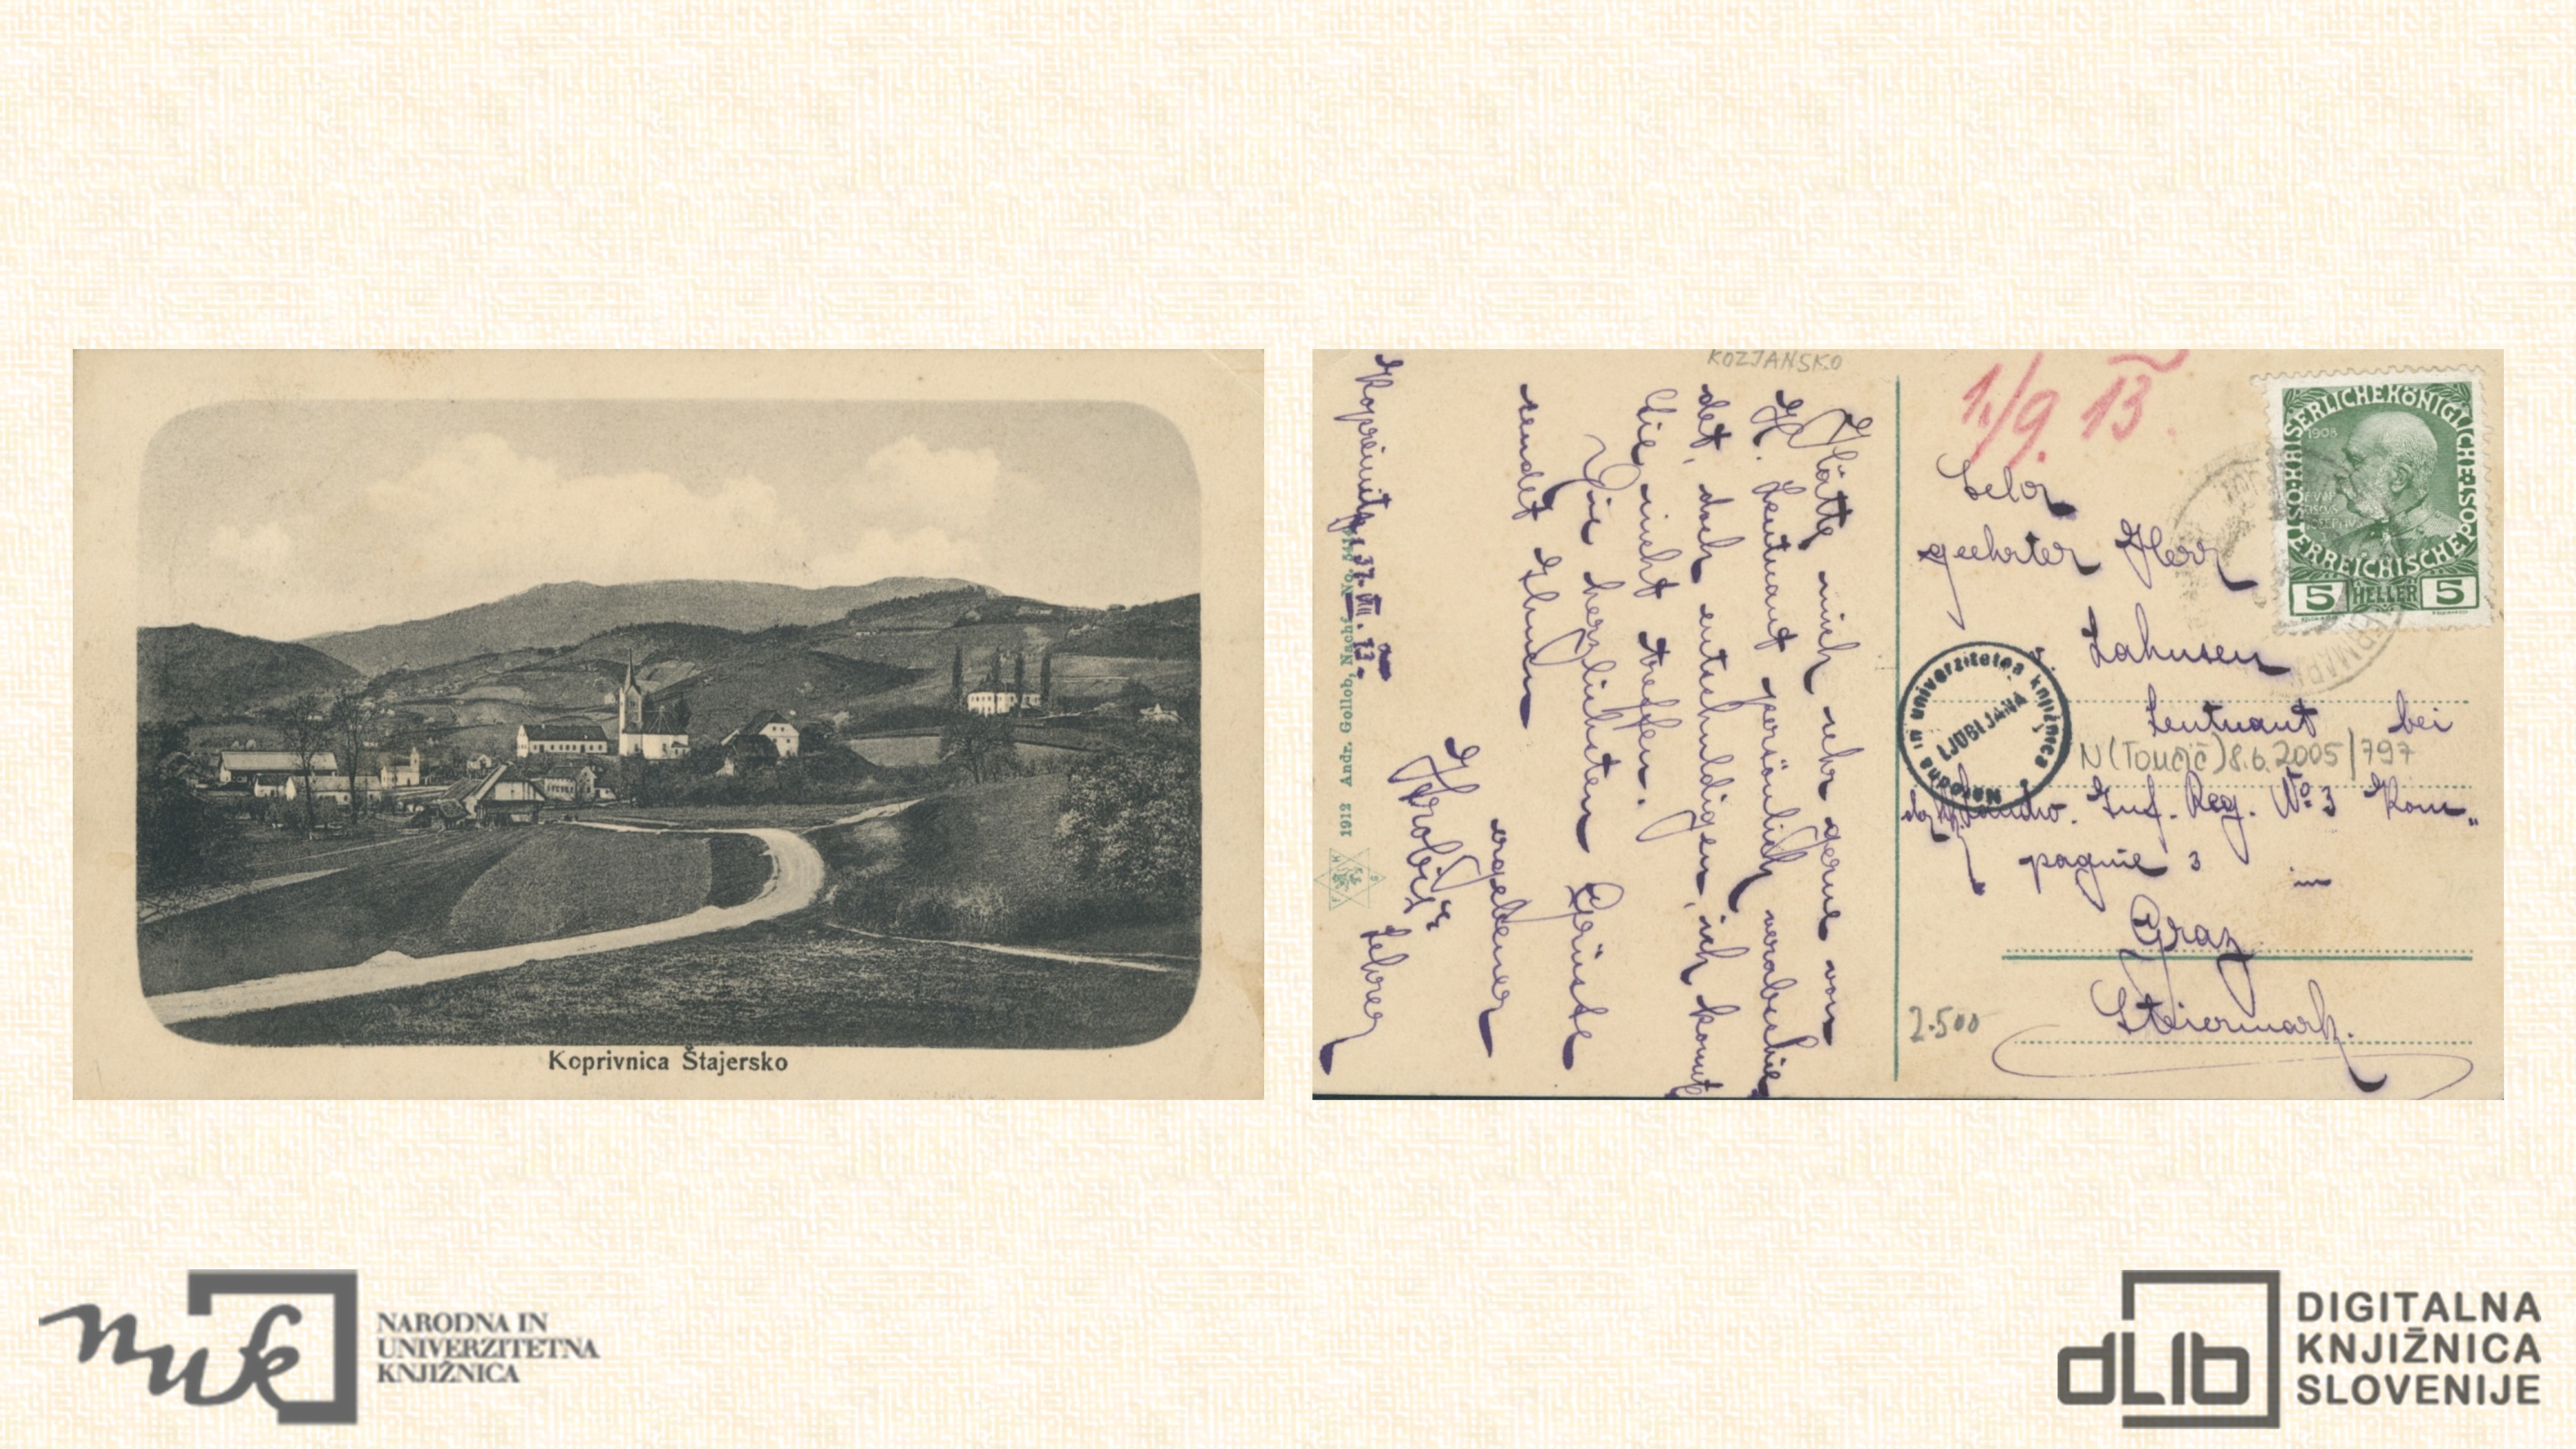 Koprivnica Štajersko
KOZJANSKO
Hätte mich sehr gerne von
H. Leutnant persönlich verabschie
det, doch entschuldigen, ich konnte
Sie nicht treffen.
Die herzlichsten Grüsse
sendet Ihnen
ergebener
Lehrer
Kopreinitz, 31. VIII. 13.
1912 Andr. Gollob, Nachf. No.
1./9. 13.
Sehr
geehrter Herr
v. Lahusen
Leutnant bei
N (Tončič) 8.6.2005/797
Landw. Inf. Reg. No 3 Kom„
pagnie 3 in
Graz
Steiermark.
2.500
Narodna in univerzitetna knjižnica
LJUBLJANA
KAISERLICHE KÖNIGLICHE ÖSTERREICHISCHE POST
1908
5 HELLER 5
nuk
NARODNA IN
UNIVERZITETNA
KNJIŽNICA
dLib
DIGITALNA
KNJIŽNICA
SLOVENIJE